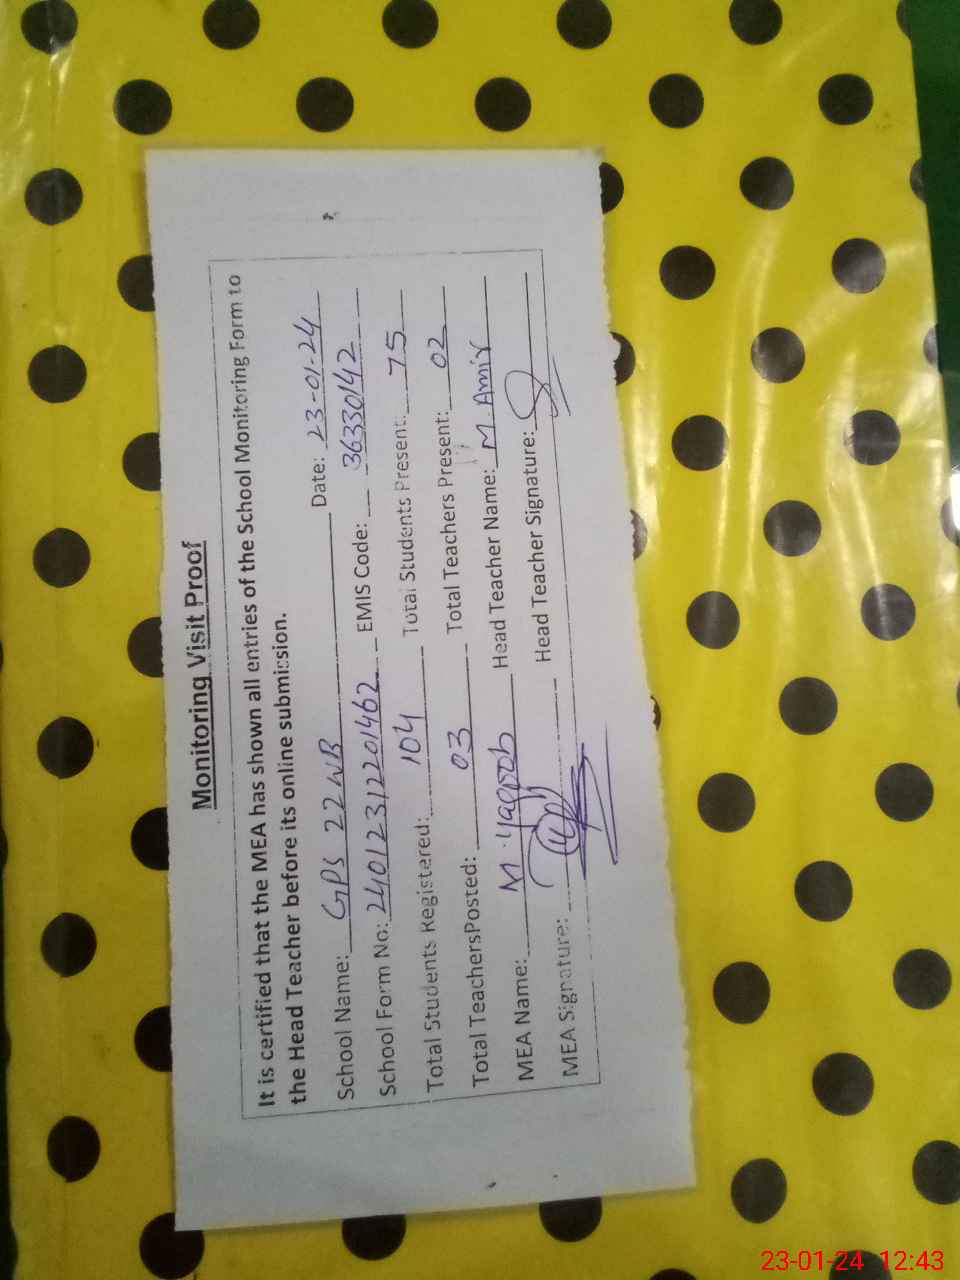 Monitoring Visit Proof
It is certified that the MEA has shown all entries of the School Monitoring Form to
the Head Teacher before its online submission.
School Name: GPS 22 WB Date: 23-01-24
School Form No: 24012312201462 EMIS Code: 36330142
Total Students Registered: 104 Total Students Present: 75
Total TeachersPosted: 03 Total Teachers Present: 02
MEA Name: M. Yaqoob Head Teacher Name: M Amir
MEA Signature: Head Teacher Signature:
23-01-24 12:43